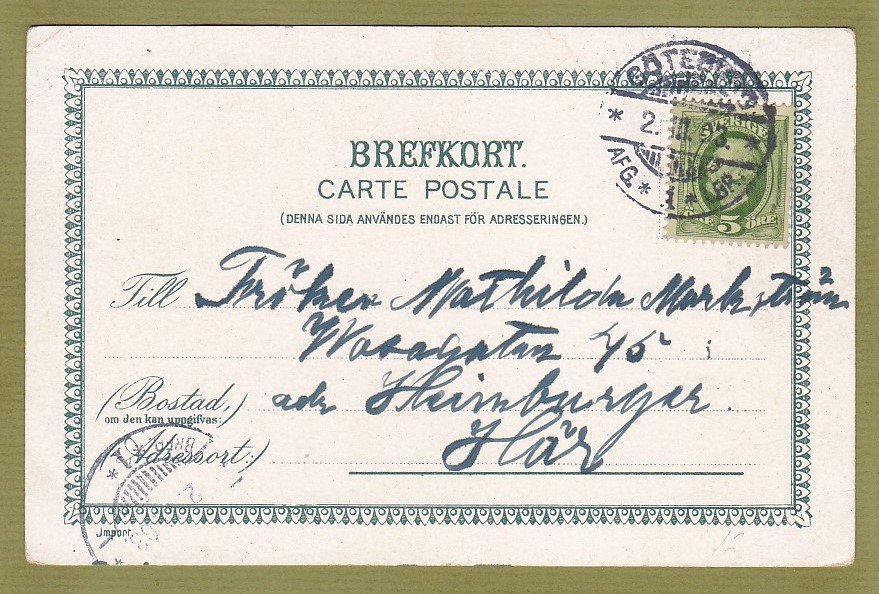 GÖTEBORG
* 2. *
AFG. * 1 * BR.
SVERIGE
5 ÖRE
BREFKORT.
CARTE POSTALE
(DENNA SIDA ANVÄNDES ENDAST FÖR ADRESSERINGEN.)
Till Fröken Mathilda Markström
Wasagatan 45
(Bostad,) adr Heimburger.
om den kan uppgifvas:
Adressort:) Här
Import.